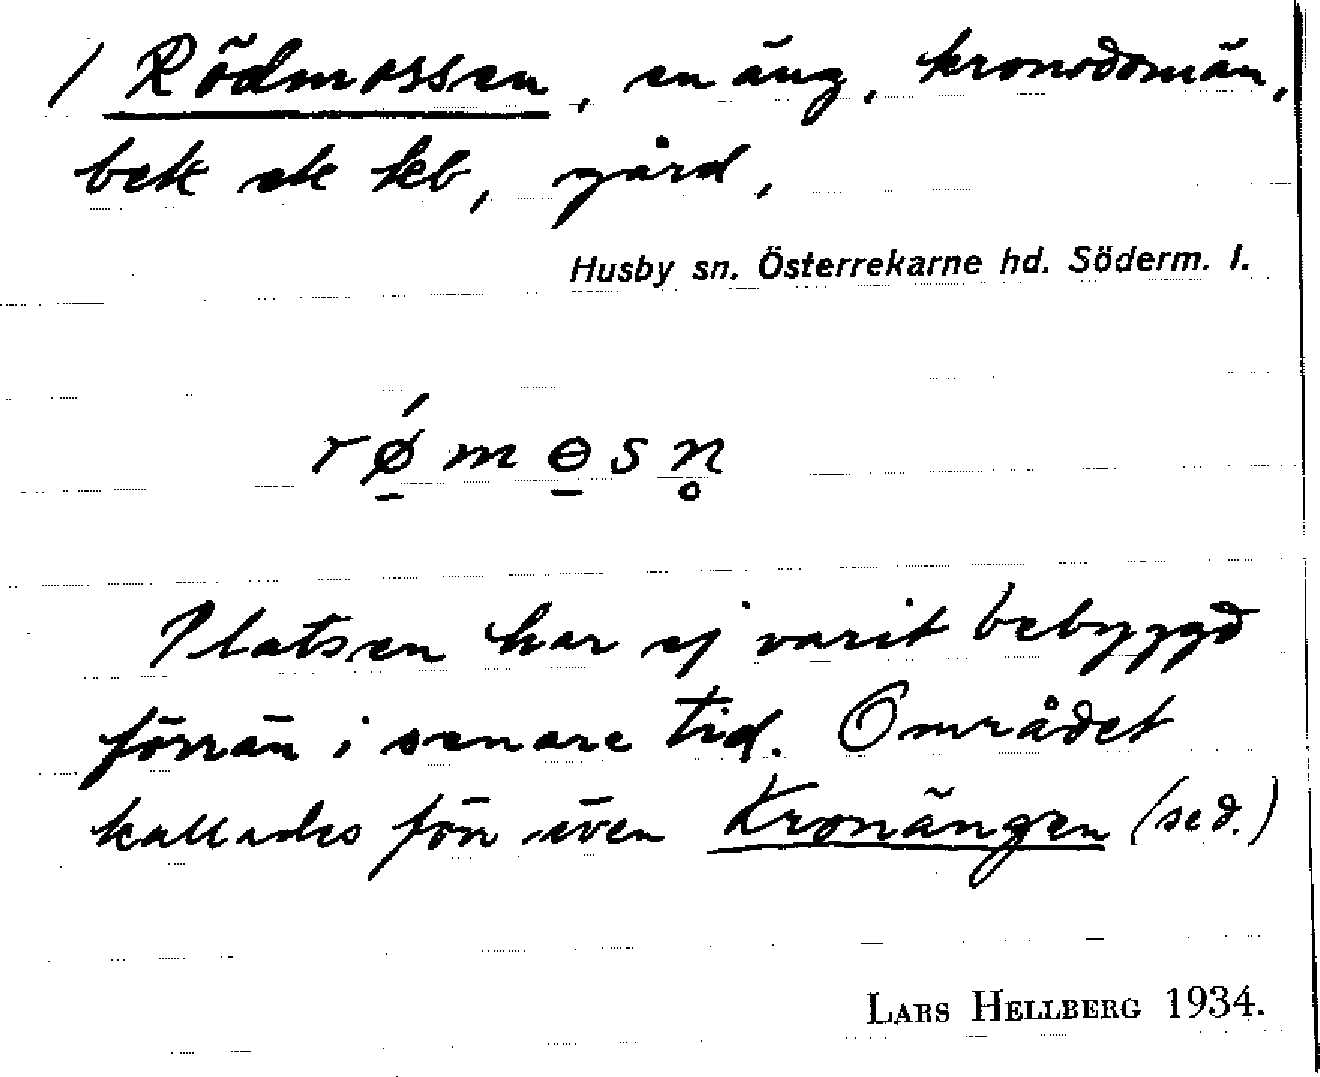 / Rödmossen, en äng, kronodomän,
bek ek kb, gård,
Husby sn. Österrekarne hd. Söderm. l.
rǿ̱mɵ̱sn̥
Platsen har ej varit bebyggd
förrän i senare tid. Området
kallades förr även Kronängen (se d.)
LARS HELLBERG 1934.